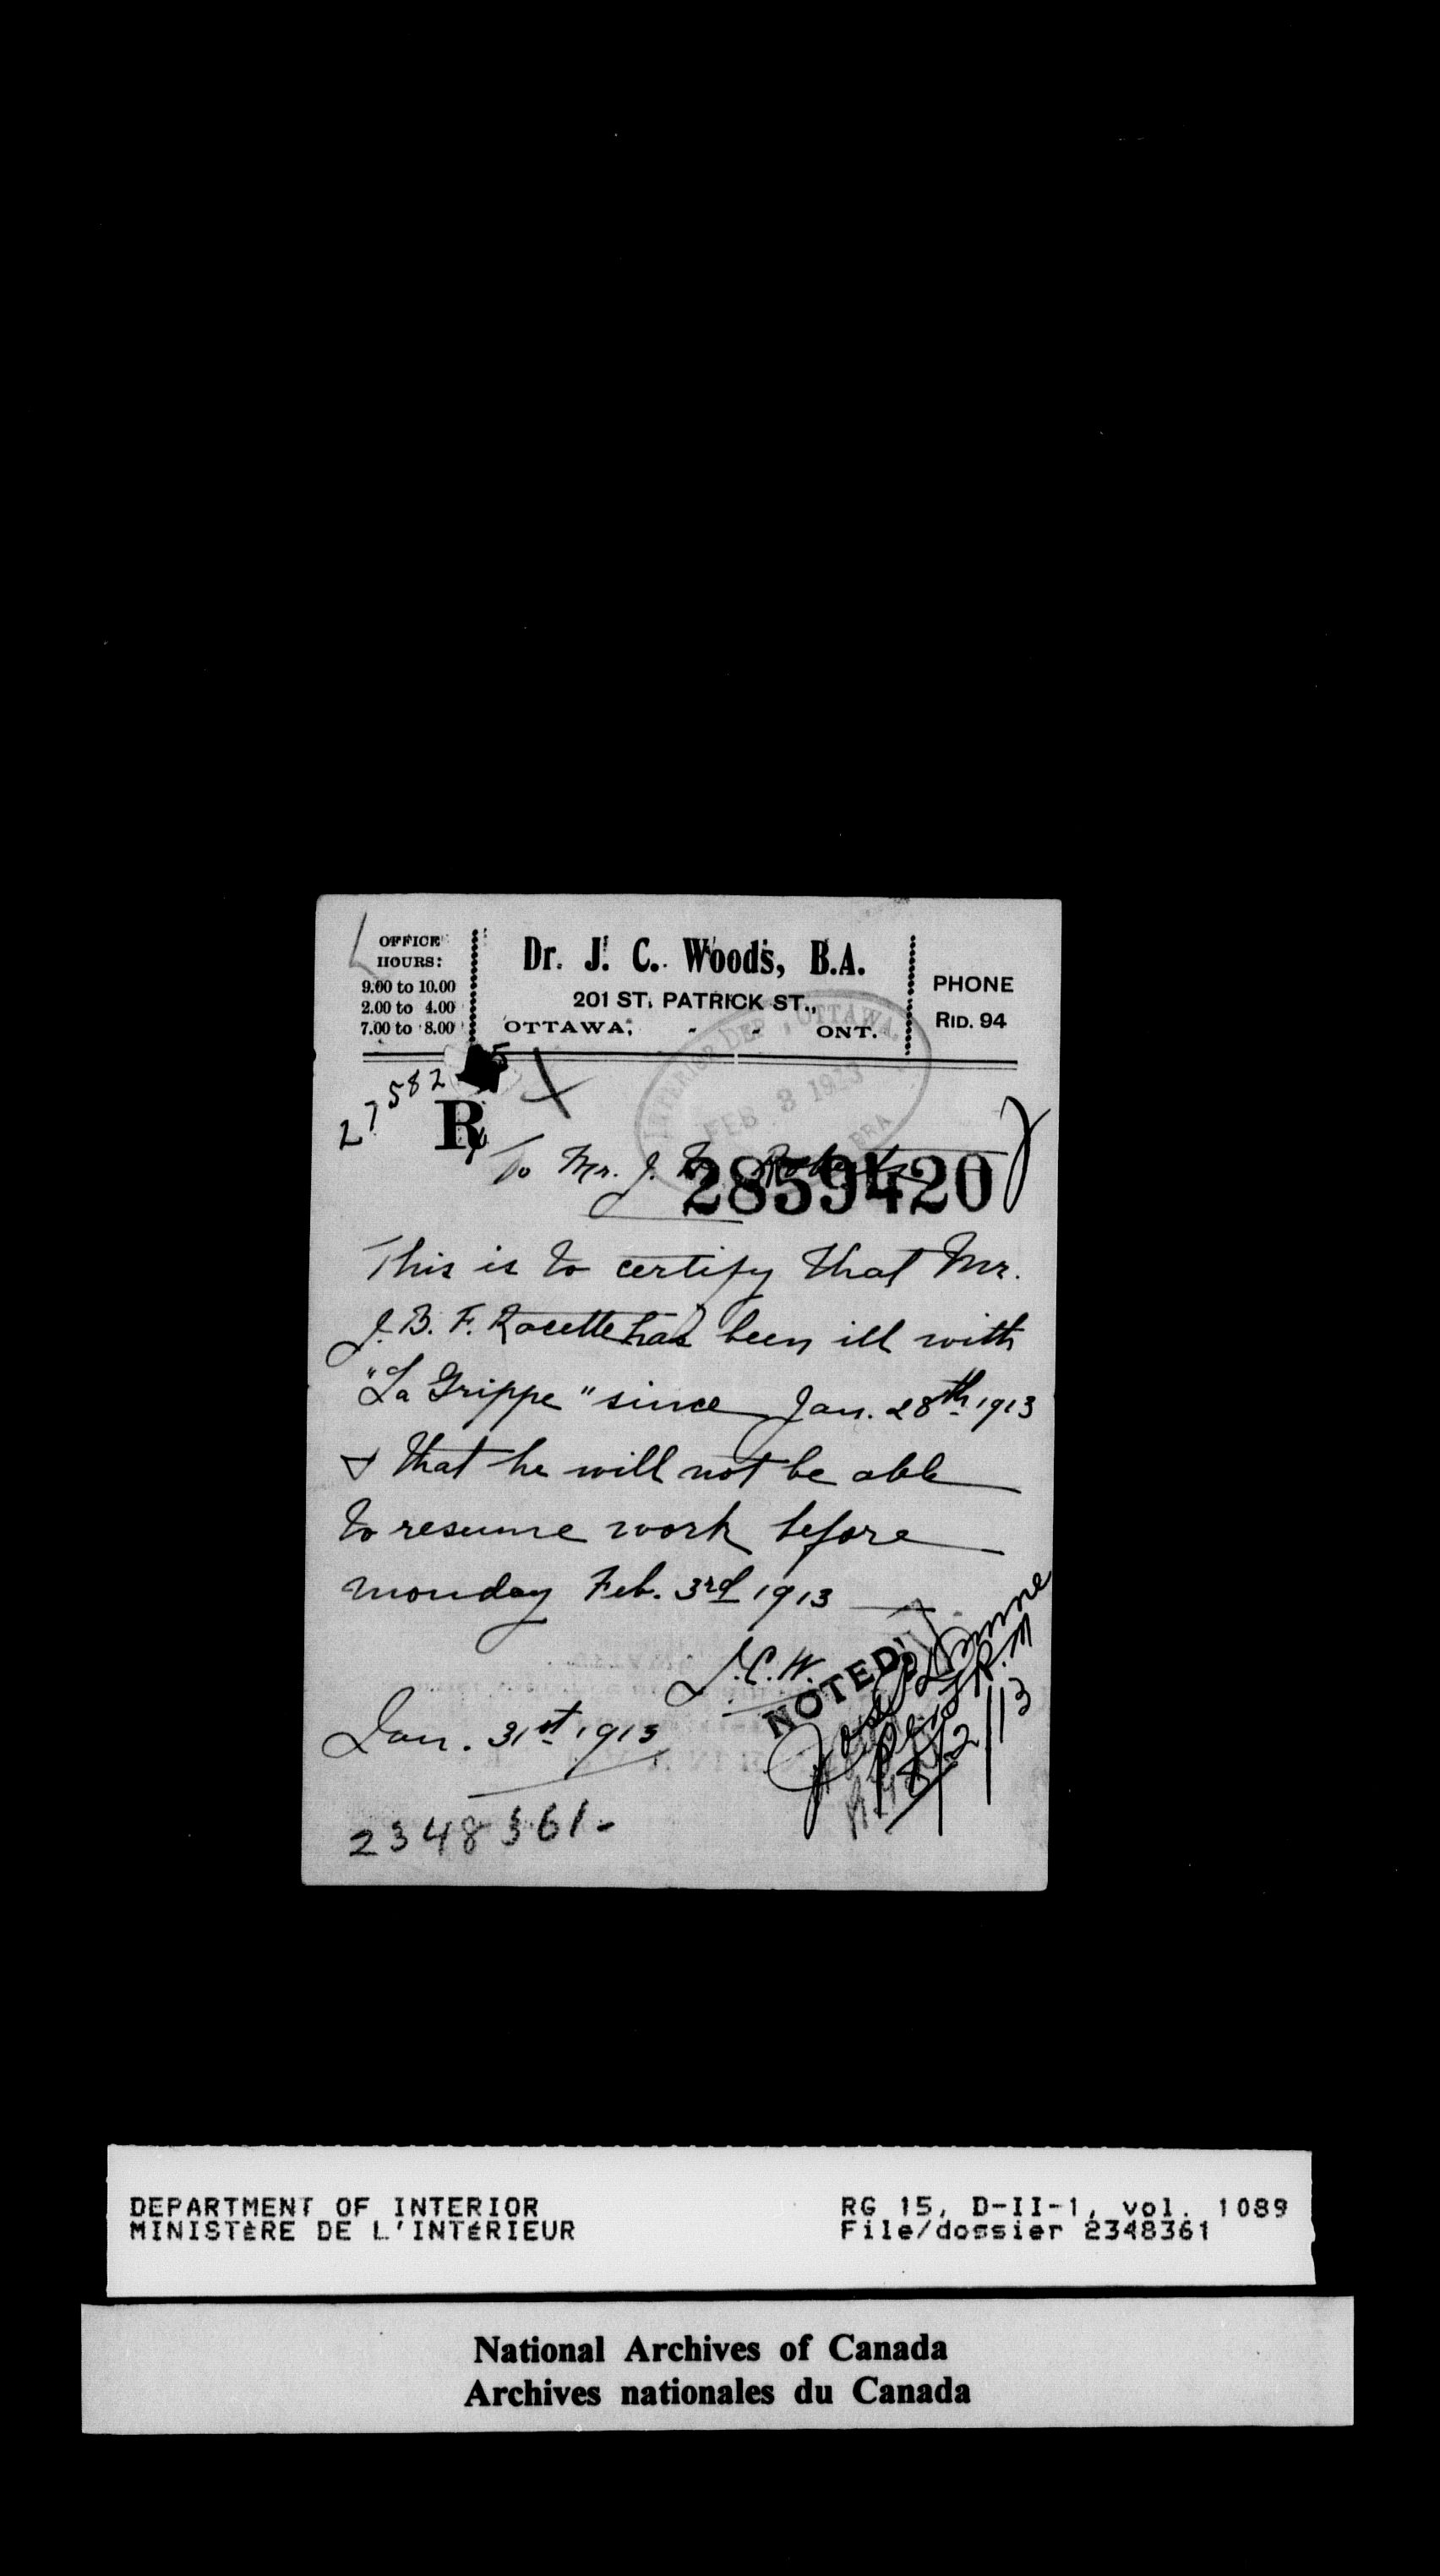 OFFICE HOURS:
9.00 to 10.00
2.00 to 4.00
7.00 to 8.00
Dr. J. C. Woods, B.A.
201 ST. PATRICK ST.,
OTTAWA, - - ONT.
PHONE
RID. 94
INTERIOR DEP , OTTAWA,
FEB 8 1913
27582
R
To Mr. J.
2859420
This is to certify that Mr.
J. B. F. Racette has been ill with
"La Grippe" since Jan. 28th 1913
& that he will not be able
to resume work before
monday Feb. 3rd 1913
J. C. W.
NOTED
8/2/13
Jan. 31st 1913
2348361-
DEPARTMENT OF INTERIOR
MINISTÈRE DE L'INTÉRIEUR
RG 15, D-II-1, vol. 1089
File/dossier 2348361
National Archives of Canada
Archives nationales du Canada